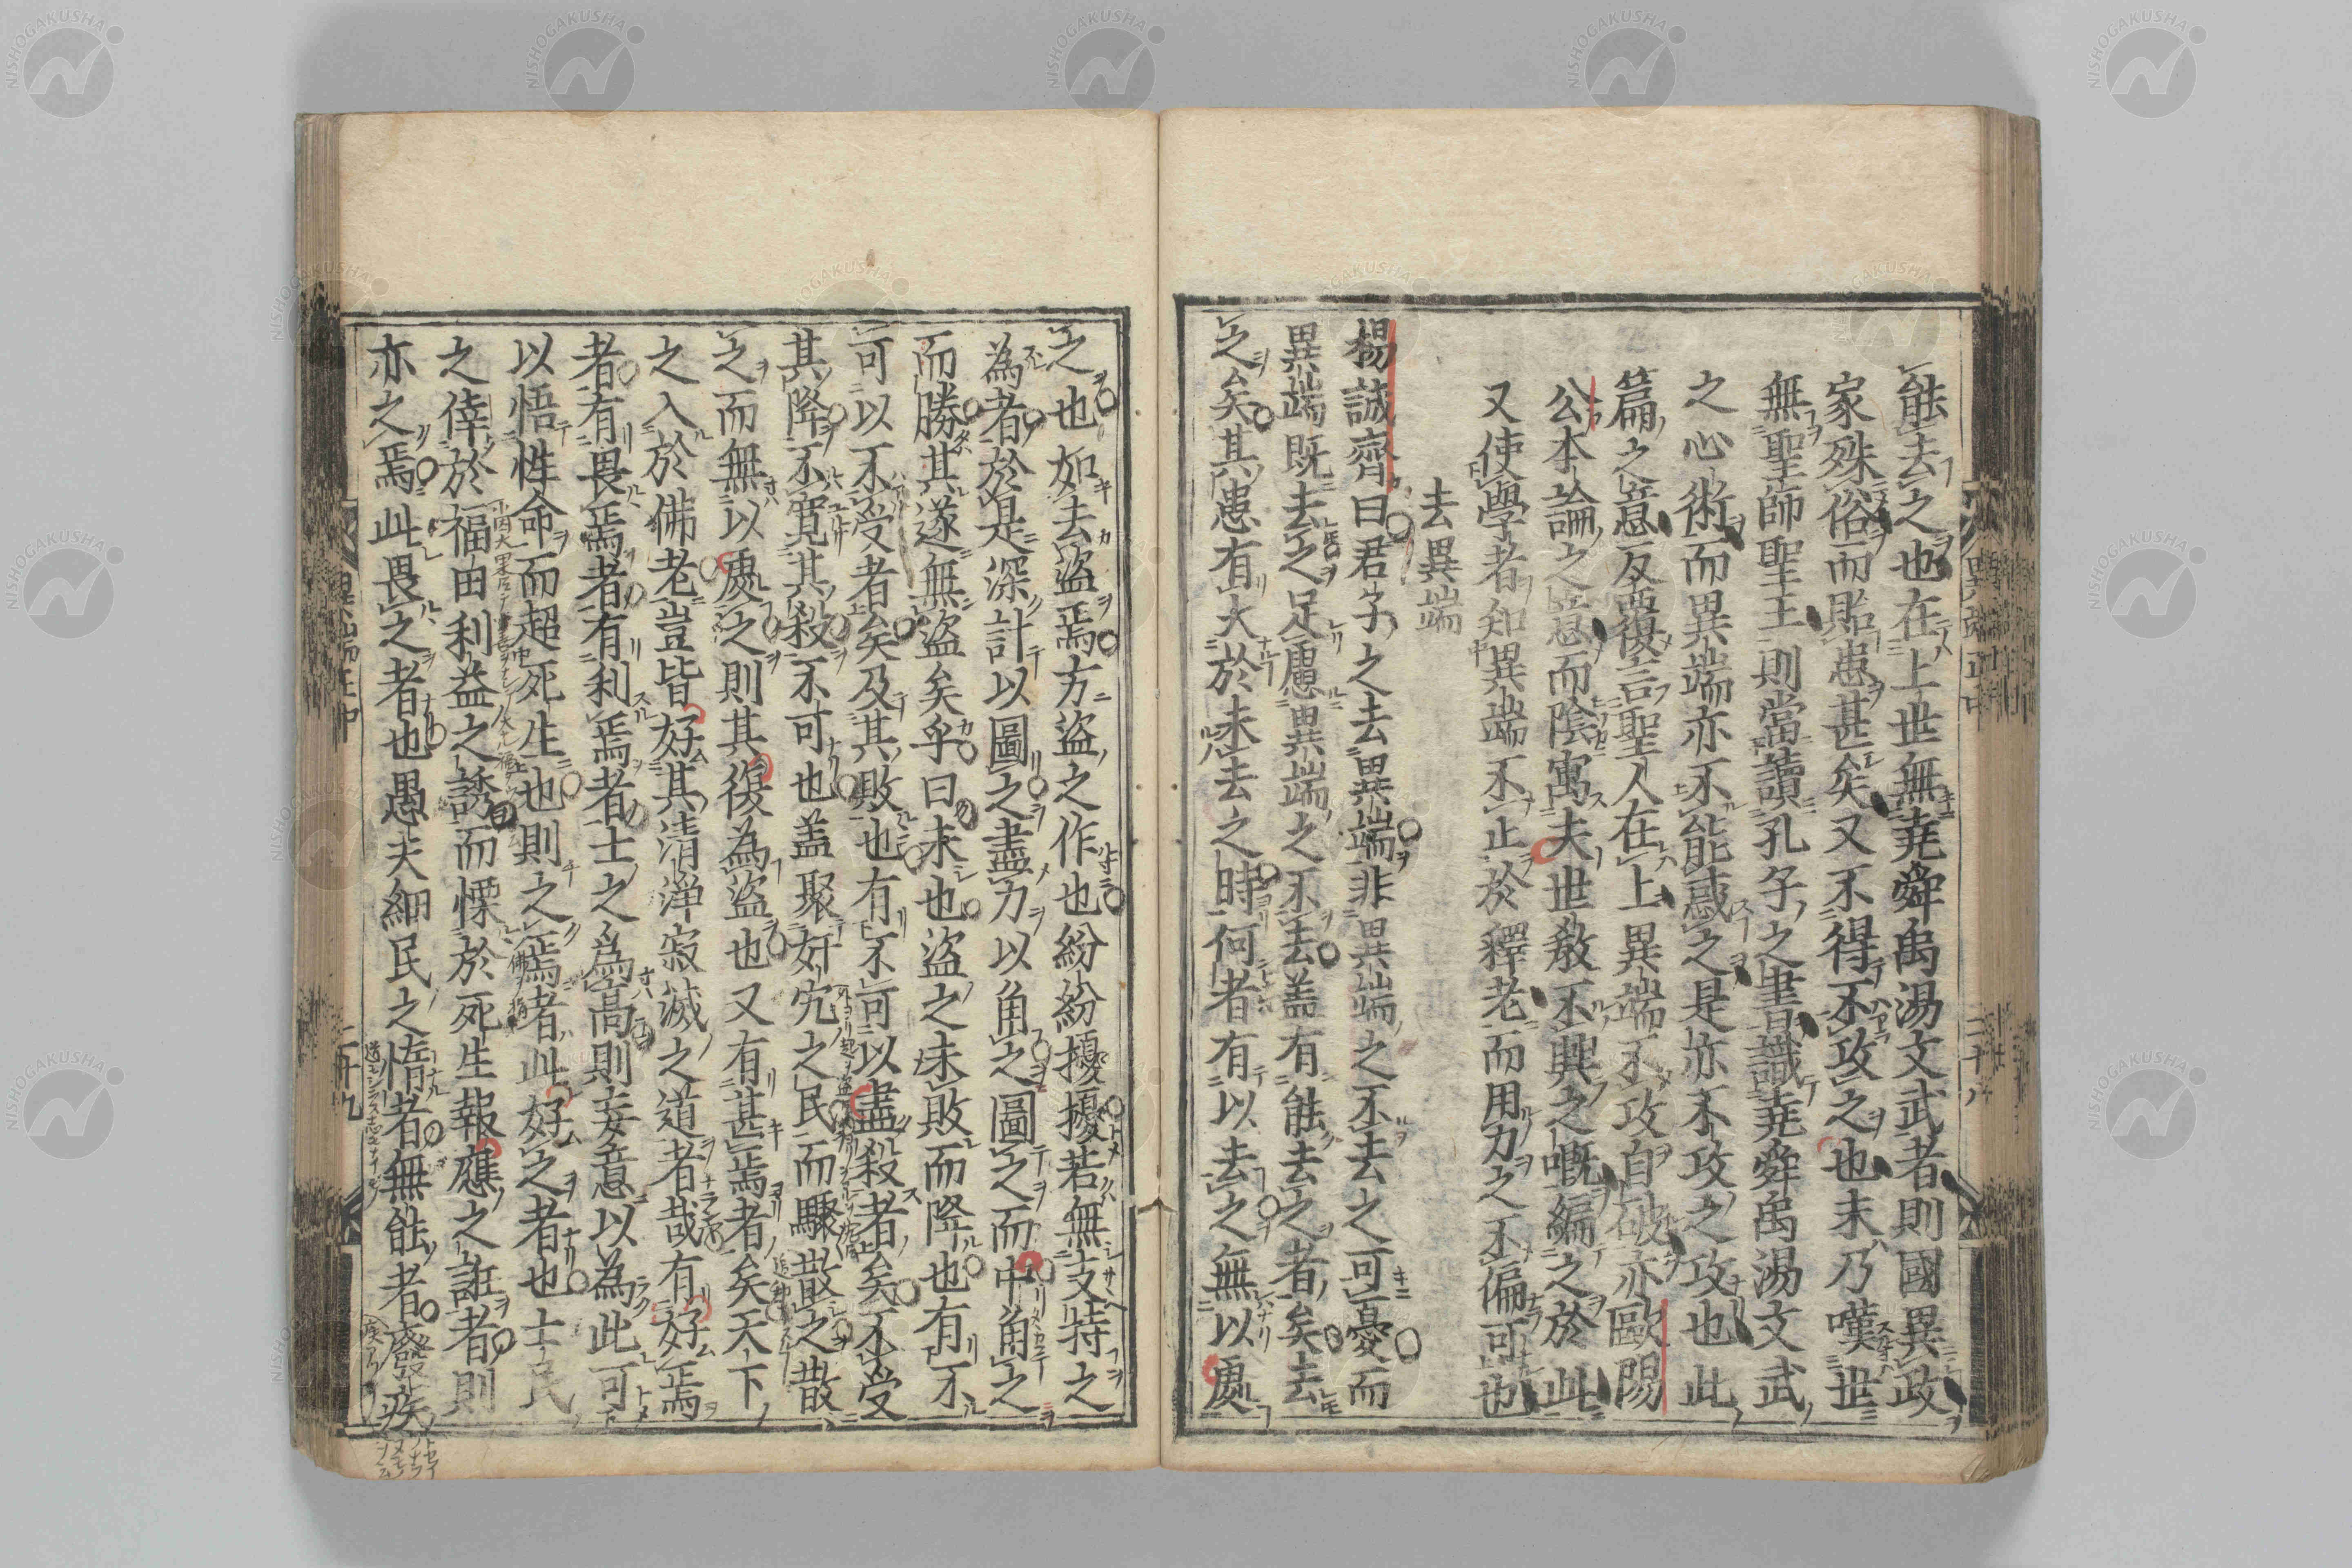 能去之也在上世無堯舜禹湯文武者則國異政
家殊俗而貽患甚矣又不得不攻之也末乃嘆世
無聖師聖王則當讀孔子之書識堯舜禹湯文武
之心術而異端亦不能惑之是亦不攻之攻也此
篇之意反覆言聖人在上異端不攻自破亦歐陽
公本論之意而陰寓夫世教不興之嘅編之於此
又使學者知異端不止於釋老而用力之不偏可也
去異端
楊誠齋曰君子之去異端非異端之不去之可憂而
異端既去之足慮異端之不去盖有能去之者矣去
之矣其患有大於未去之時何者有以去之無以處
之也如去盜焉方盜之作也紛紛擾擾若無支持之
為者於是深計以圖之盡力以角之圖之而中角之
而勝其遂無盜矣乎曰未也盜之未敗而降也有不
可以不受者矣及其敗也有不可以盡殺者矣不受
其降不寬其殺不可也盖聚奸宄之民而驟散之散
之而無以處之則其復為盜也又有甚焉者矣天下
之入於佛老豈皆好其清淨寂滅之道者哉有好焉
者有畏焉者有利焉者士之為高則妄意以為此可
以悟性命而超死生也則之焉者此好之者也士民
之倖於福田利益之誘而慄於死生報應之誑者則
亦之焉此畏之者也愚夫細民之惰者無能者癈疾
異端正中
二十九
二十八